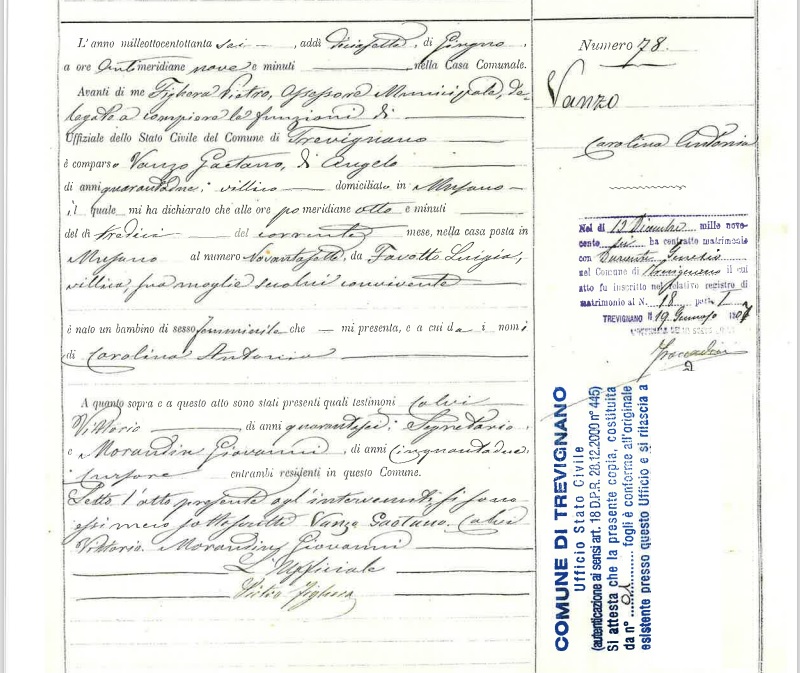 L'anno milleottocentottanta sei, addì diciasette, di Giugno,
a ore antimeridiane nove e minuti, nella Casa Comunale.
Avanti di me Pietro, Assessore Municipale, de-
legato a compiere le funzioni di
Uffiziale dello Stato Civile del Comune di Trevignano
è comparso Vanzo Gaetano, di Angelo
di anni quarantadue, villico domiciliato in Musano
il quale mi ha dichiarato che alle ore pomeridiane otto e minuti
del dì tredici del corrente mese, nella casa posta in
Musano al numero Novantasette, da Favotto Luigia,
villica, sua moglie seco lui convivente
è nato un bambino di sesso femminile che mi presenta, e a cui da i nomi
di Carolina Antonia
A quanto sopra e a questo atto sono stati presenti quali testimoni Calvi
Vittorio di anni quarantasei, Segretario
e Morandin Giovanni, di anni cinquantadue
Cursore entrambi residenti in questo Comune.
Letto l'atto presente agl'intervenuti, si sono
essi meco sottoscritti Vanzo Gaetano. Calvi
Vittorio. Morandin Giovanni
L'Uffiziale
Numero 78.
Vanzo
Carolina Antonia
Nel dì 12 Dicembre mille nove-
cento sei ha contratto matrimonio
con Genesio
nel Comune di Trevignano il cui
atto fu inscritto nel relativo registro di
matrimonio al N. 18 parte I
TREVIGNANO lì 19 Gennajo 1907
COMUNE DI TREVIGNANO
Ufficio Stato Civile
(autenticazione ai sensi art. 18 D.P.R. 28.12.2000 n° 445)
Si attesta che la presente copia, costituita
da n° fogli è conforme all'originale
esistente presso questo Ufficio e si rilascia a